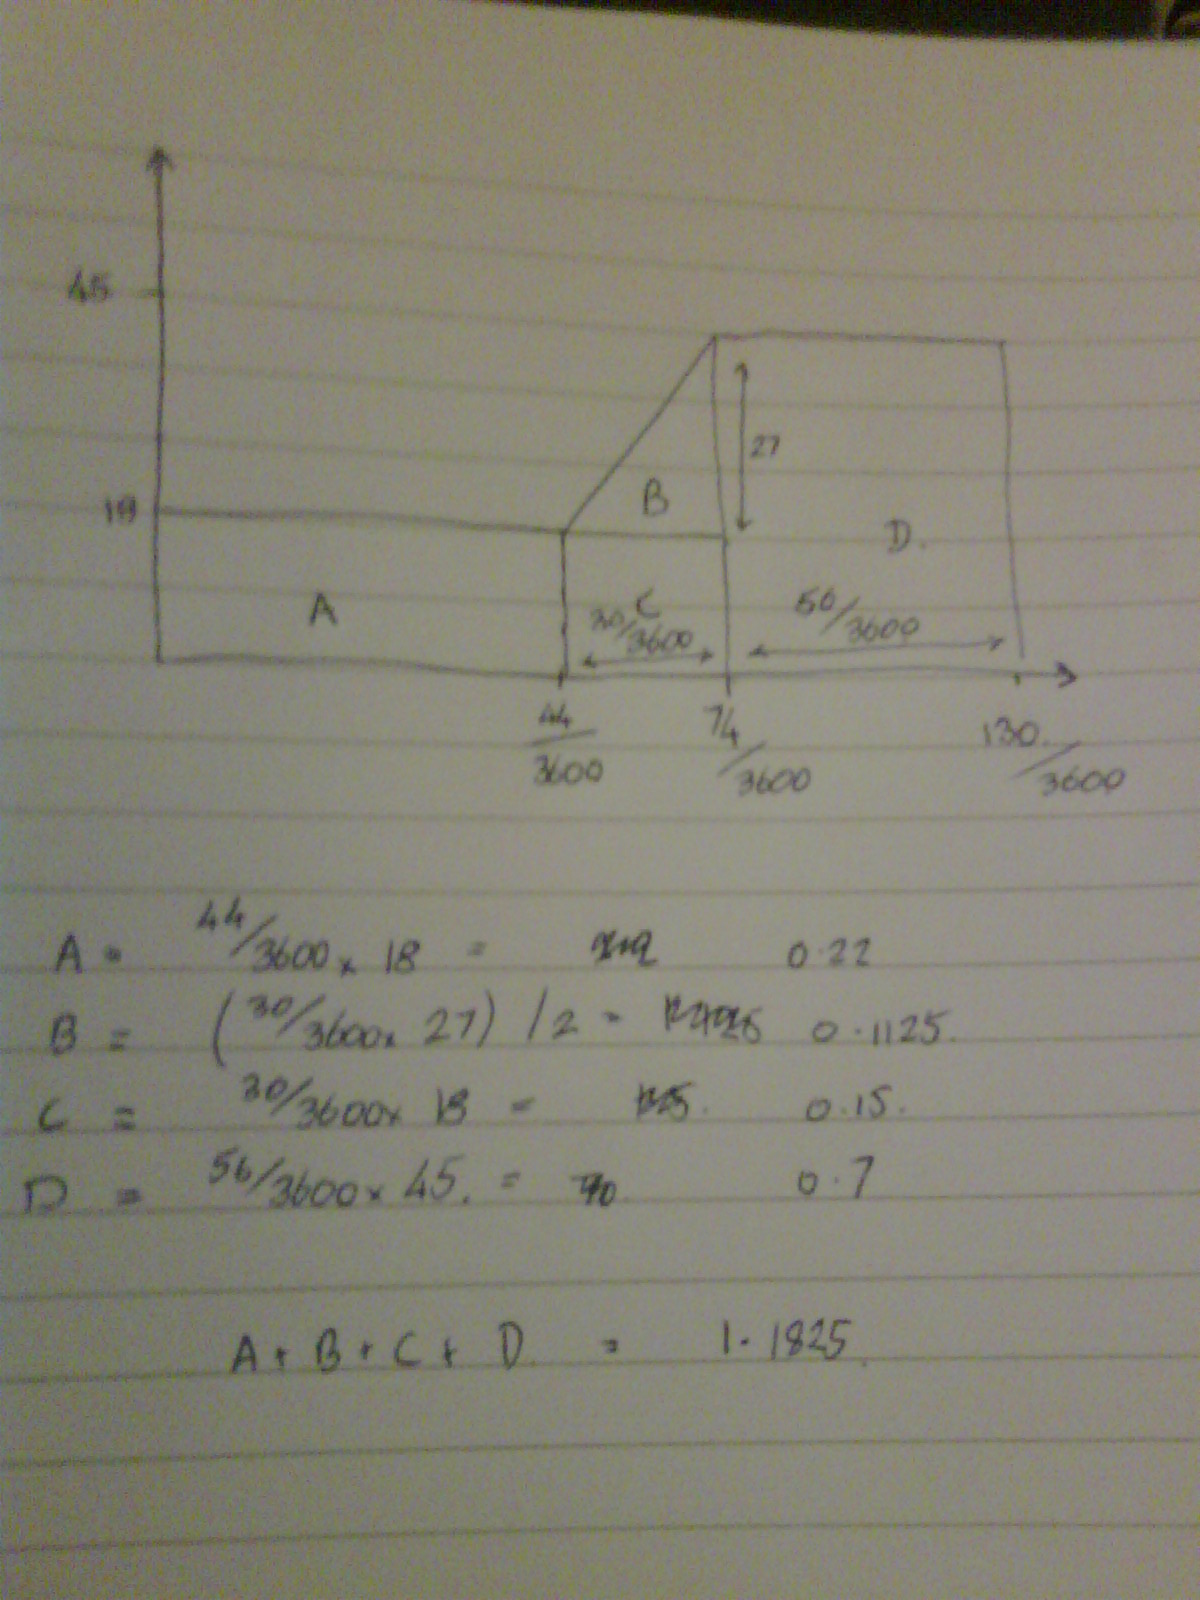 45
27
18
B
D.
A
C
30/3600
56/3600
44/3600
74/3600
130/3600
A = 44/3600 x 18 = 0.22
B = (30/3600 x 27) /2 = 0.1125.
C = 30/3600 x 18 = 0.15.
D = 56/3600 x 45. = 0.7
A + B + C + D = 1.1825